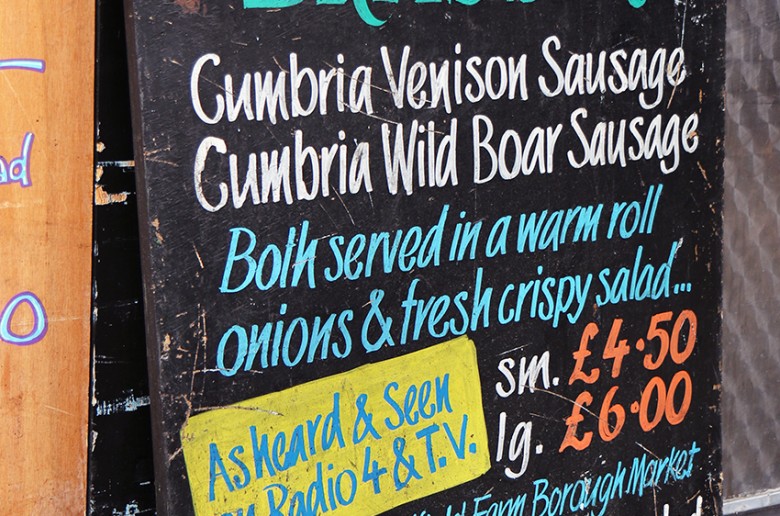 Cumbria Venison Sausage
Cumbria Wild Boar Sausage
Both served in a warm roll
onions & fresh crispy salad...
sm. £4.50
lg. £6.00
As heard & Seen
on Radio 4 & T.V.
Farm Borough Market